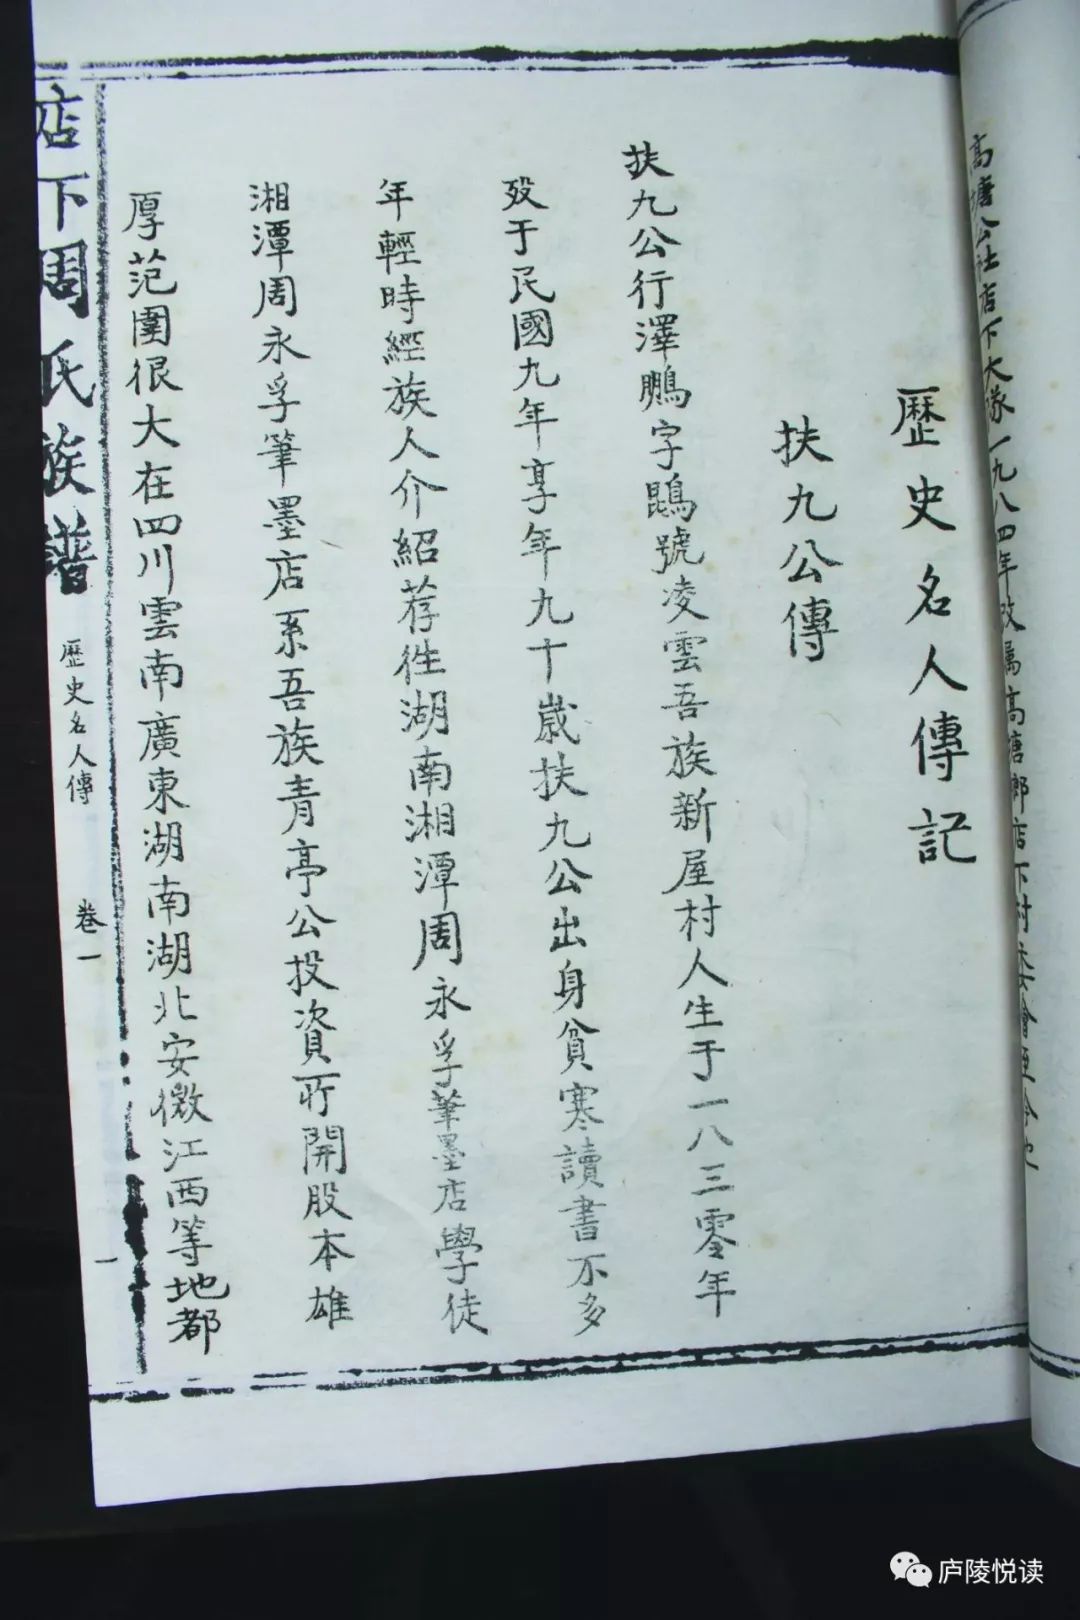 高塘公社店下大隊一九八四年改属高塘鄉店下村委會
歷史名人傳記
扶九公傳
扶九公行澤鵬字鵾號凌雲吾族新屋村人生于一八三零年
殁于民國九年享年九十歲扶九公出身貧寒讀書不多
年輕時經族人介紹荐徃湖南湘潭周永孚筆墨店學徒
湘潭周永孚筆墨店系吾族青亭公投資所開股本雄
厚范圍很大在四川雲南廣東湖南湖北安徽江西等地都
店下周氏族譜 歷史名人傳 卷一 一
庐陵悦读